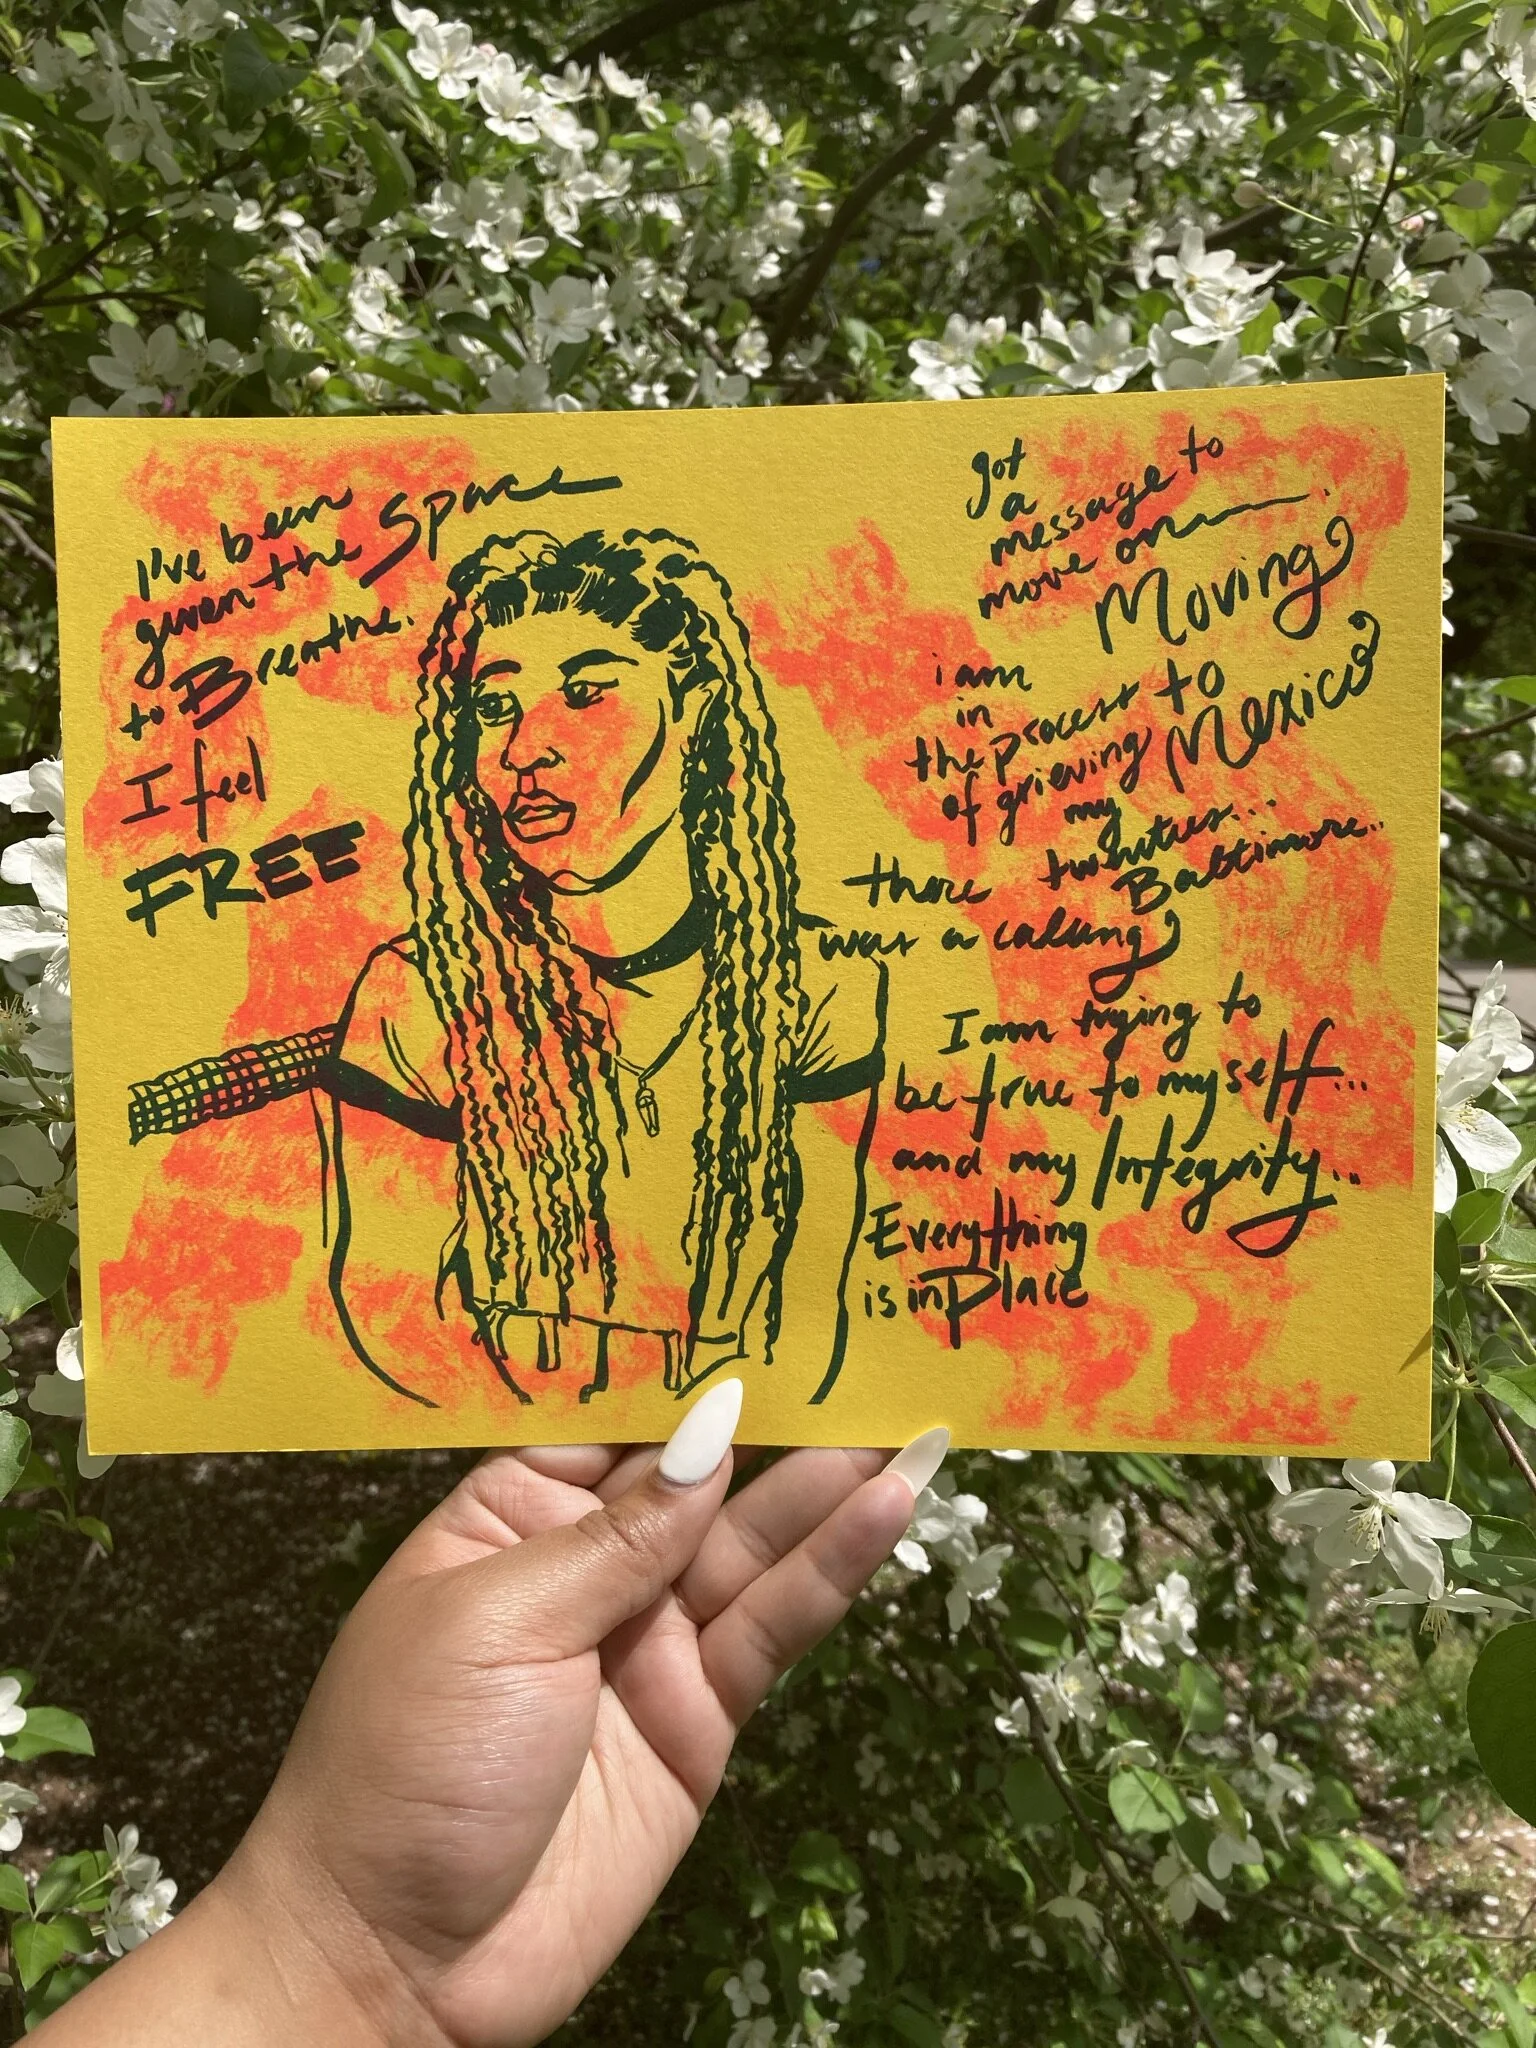 I've been
given the Space
to Breathe.
I feel
FREE
got
a
message to
move on
Moving
to
Mexico
i am
in
the process
of grieving
my
twenties...
Baltimore..
there
was a calling
I am trying to
be true to myself...
and my Integrity...
Everything
is in Place